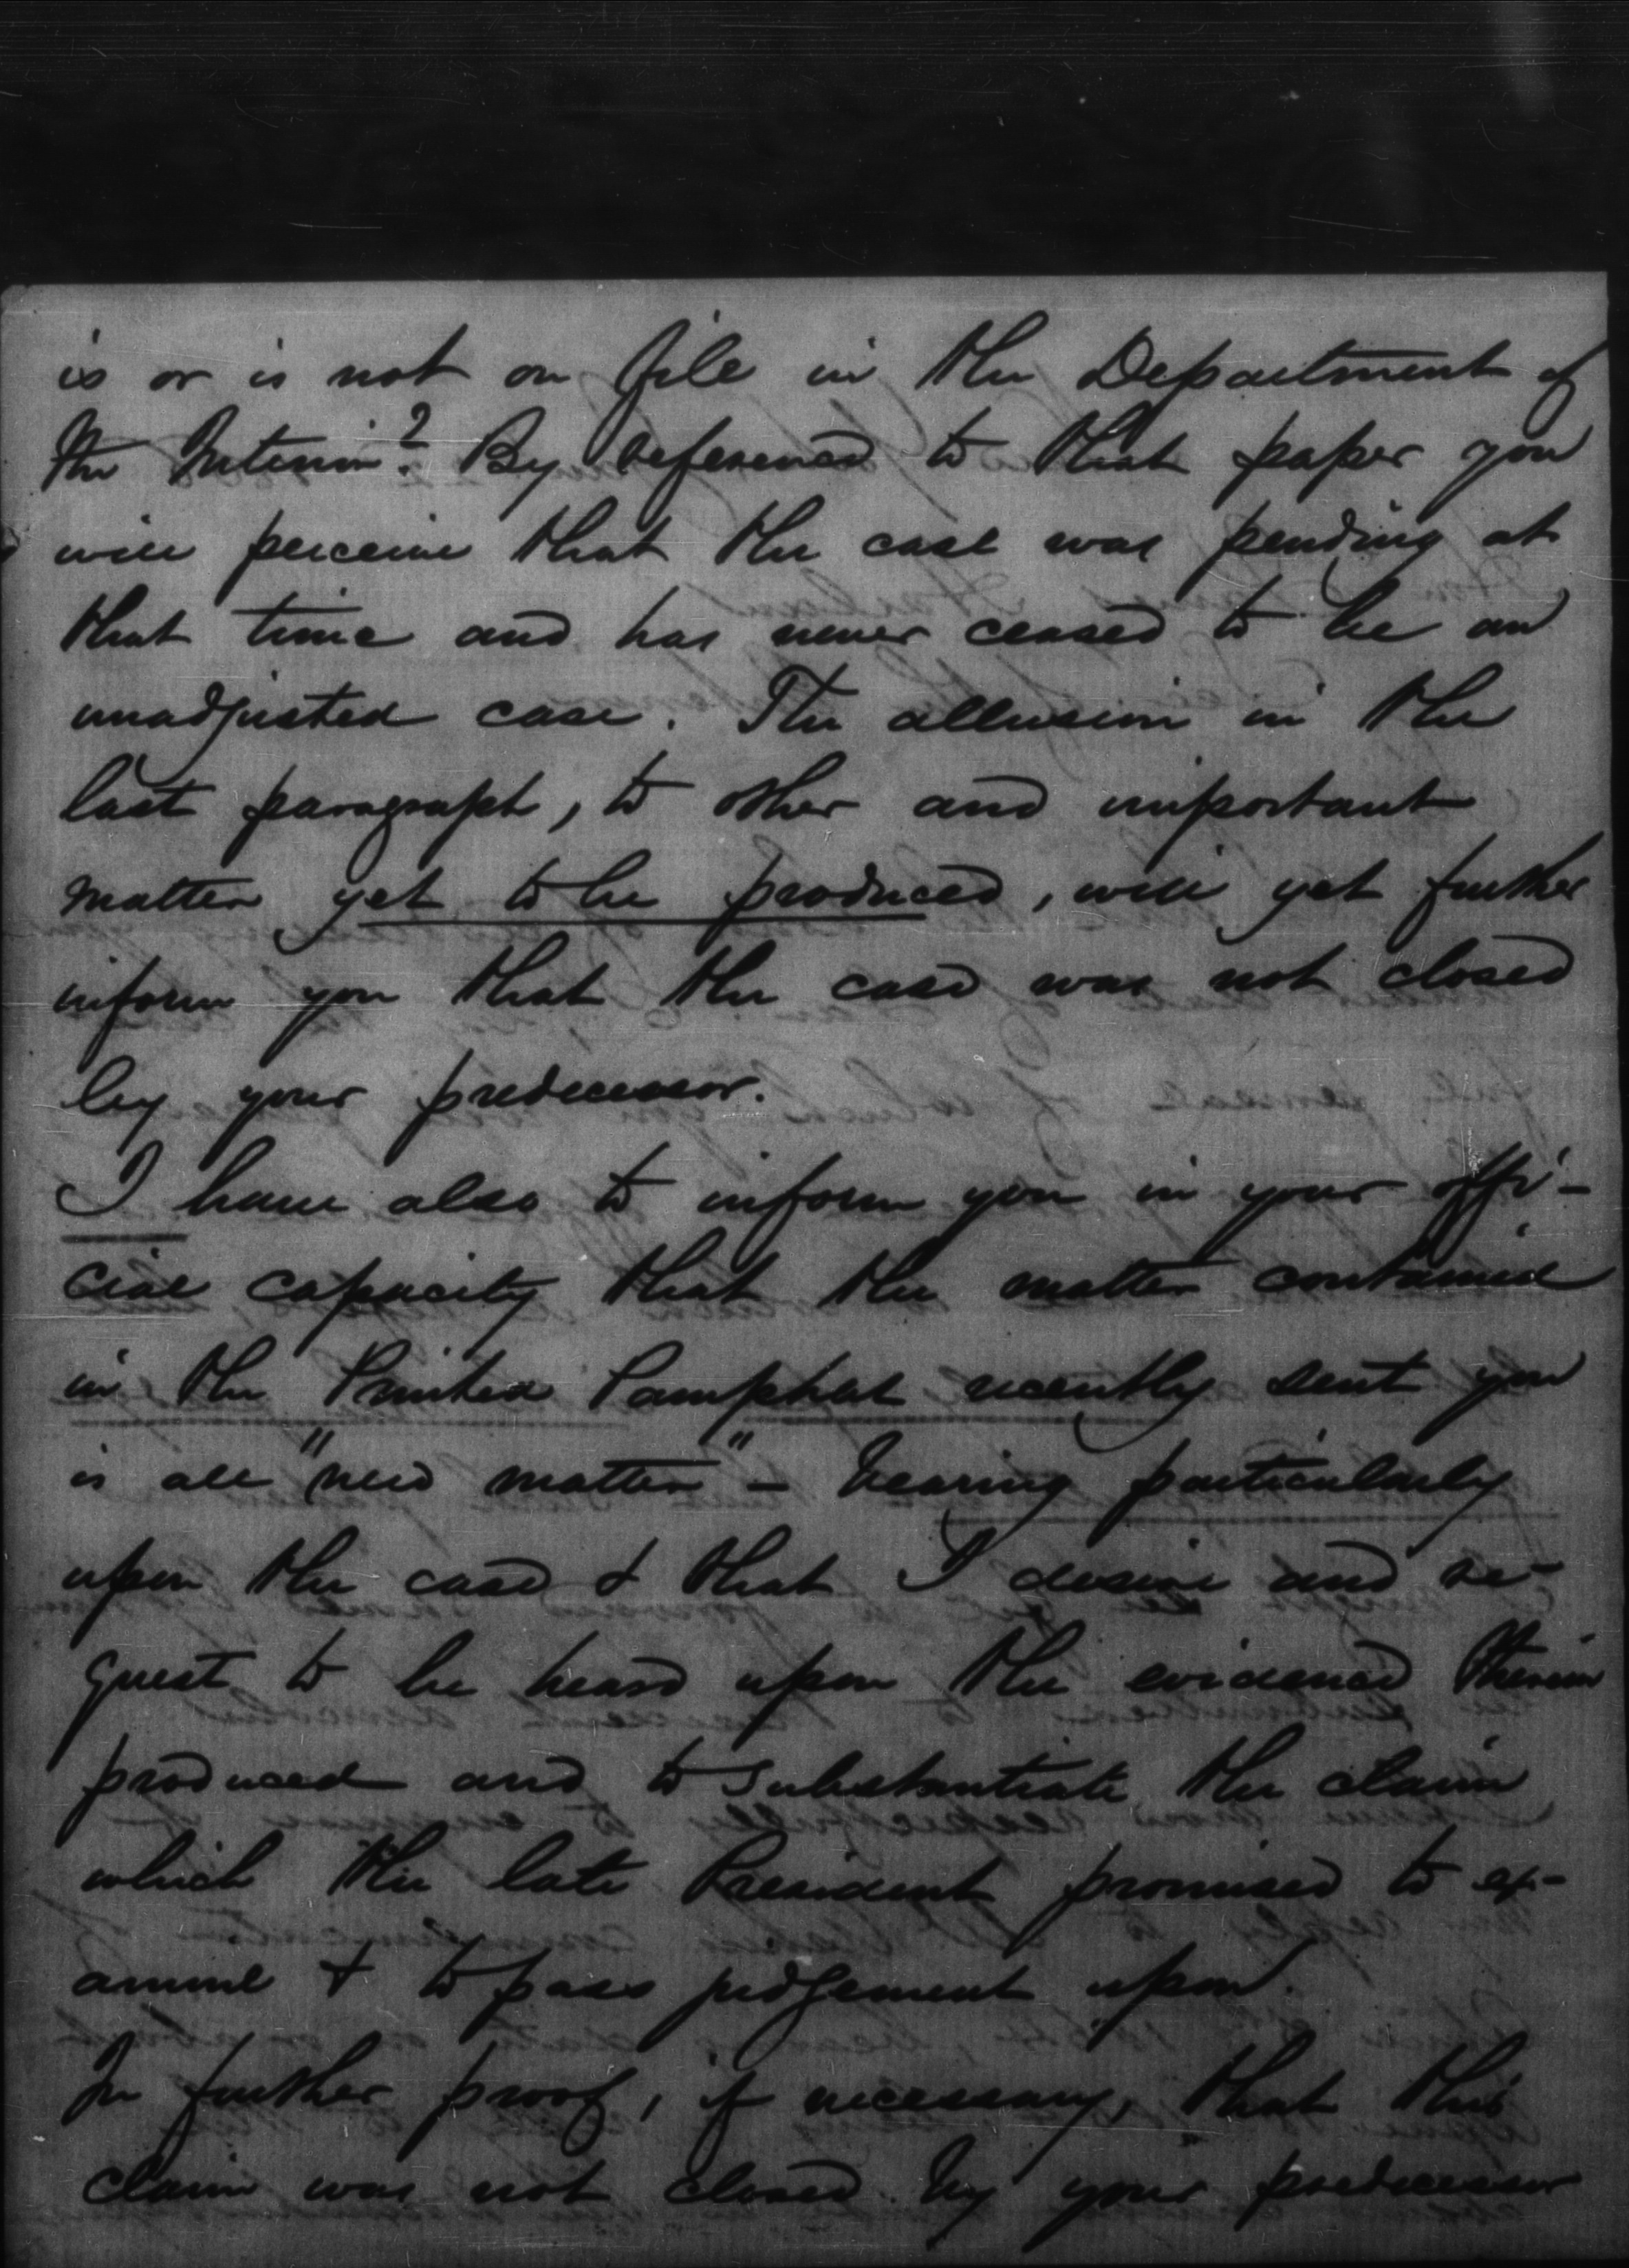 is or is not on file in the Department of
the Interior? By reference to that paper you
will perceive that the case was pending at
that time and has never ceased to be an
unadjusted case. The allusion in the
last paragraph, to other and important
matter yet to be produced, will yet further
inform you that the case was not closed
by your predecessor.
I have also to inform you in your offi-
cial capacity that the matter contained
in the Printed Pamphlet recently sent you
is all "new matter" - bearing particularly
upon the case & that I desire and re-
quest to be heard upon the evidence therein
produced and to substantiate the claim
which the late President promised to ex-
amine & to pass judgement upon.
In further proof, if necessary, that this
claim was not closed by your predecessor